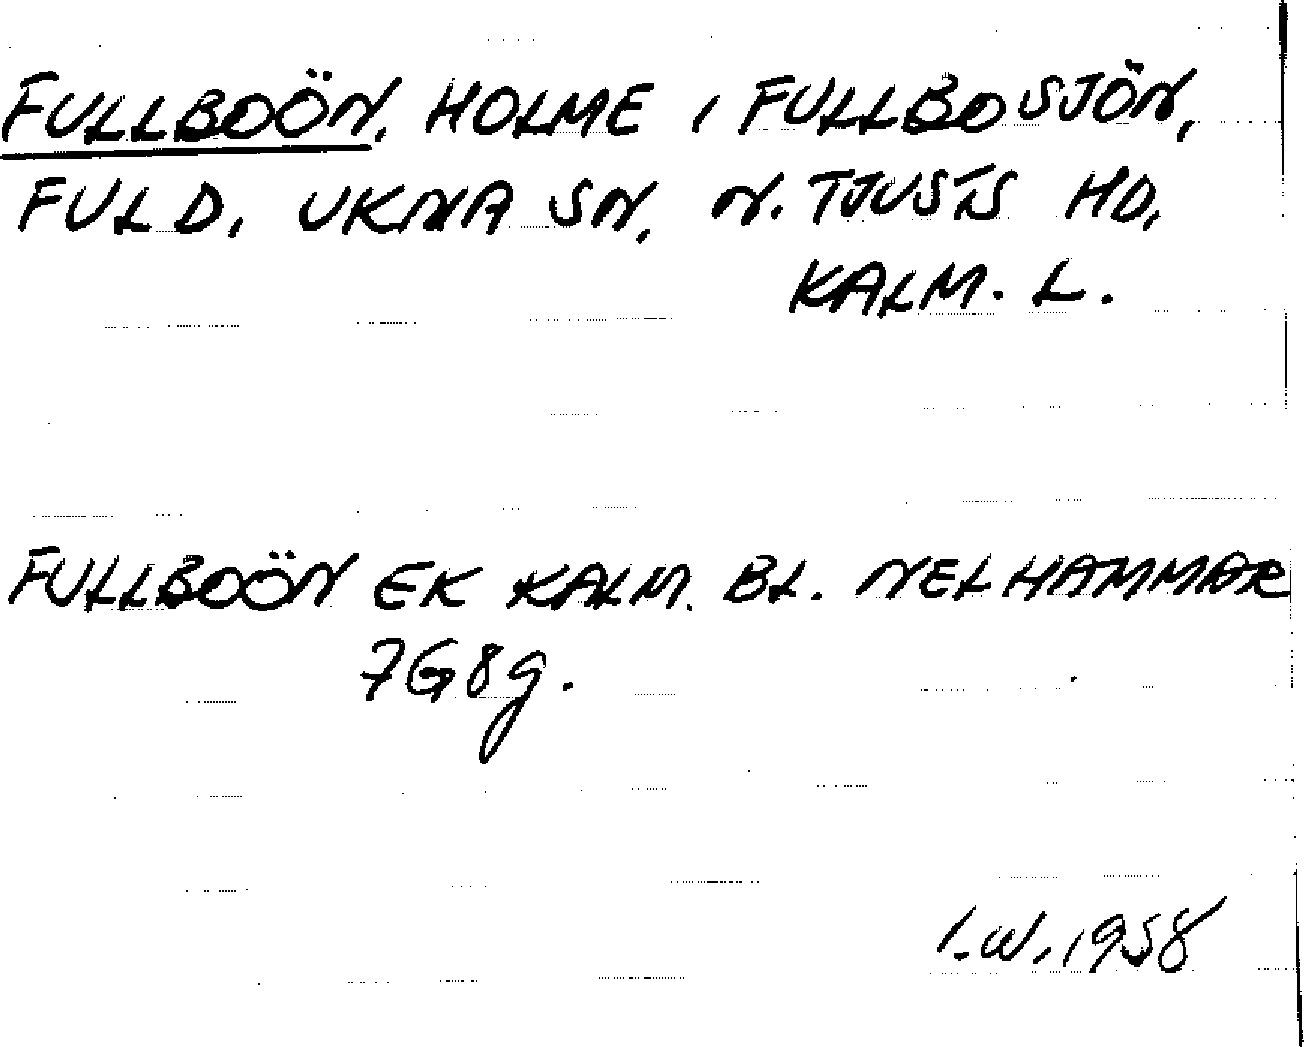 FULLBOÖN, HOLME I FULLBOSJÖN,
FULD, UKNA SN, N. TJUSTS HD,
KALM. L.
FULLBOÖN EK KALM. BL. NELHAMMAR
7G8g.
I.W. 1958